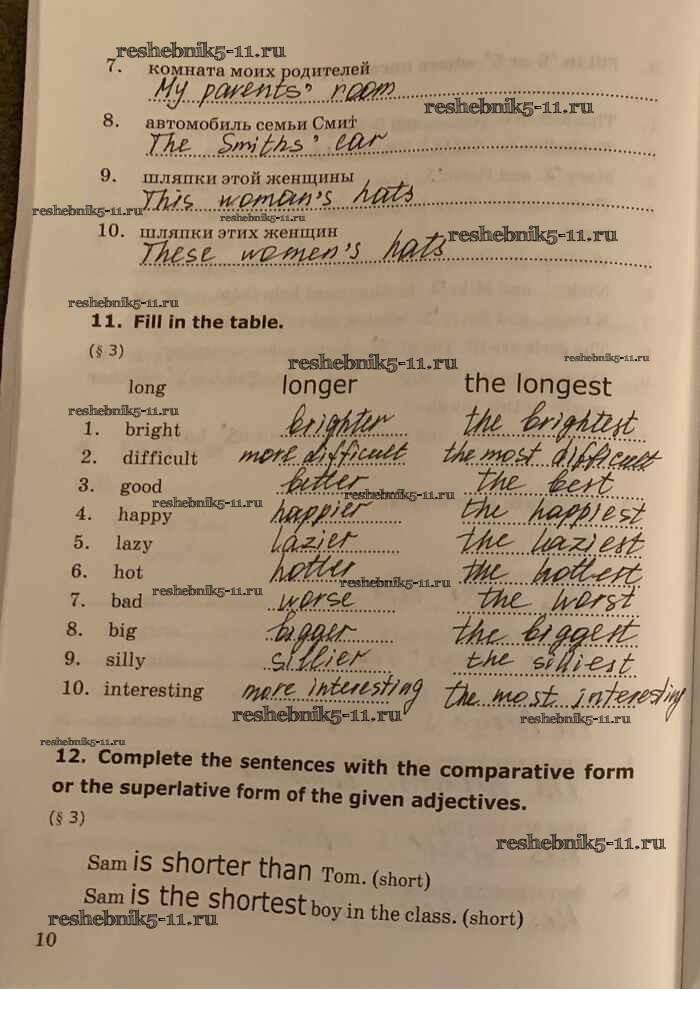 reshebnik5-11.ru
7. комната моих родителей
My parents' room
reshebnik5-11.ru
8. автомобиль семьи Смит
The Smiths' car
9. шляпки этой женщины
This woman's hats
reshebnik5-11.ru
reshebnik5-11.ru
10. шляпки этих женщин
reshebnik5-11.ru
These women's hats
reshebnik5-11.ru
11. Fill in the table.
(§ 3)
reshebnik5-11.ru
reshebnik5-11.ru
long longer the longest
reshebnik5-11.ru
1. bright brighter the brightest
2. difficult more difficult the most difficult
3. good better the best
reshebnik5-11.ru
reshebnik5-11.ru
4. happy happier the happiest
5. lazy lazier the laziest
6. hot hotter the hottest
reshebnik5-11.ru
reshebnik5-11.ru
7. bad worse the worst
8. big bigger the biggest
9. silly sillier the silliest
10. interesting more interesting the most interesting
reshebnik5-11.ru
reshebnik5-11.ru
reshebnik5-11.ru
12. Complete the sentences with the comparative form
or the superlative form of the given adjectives.
(§ 3)
reshebnik5-11.ru
Sam is shorter than Tom. (short)
Sam is the shortest boy in the class. (short)
reshebnik5-11.ru
10